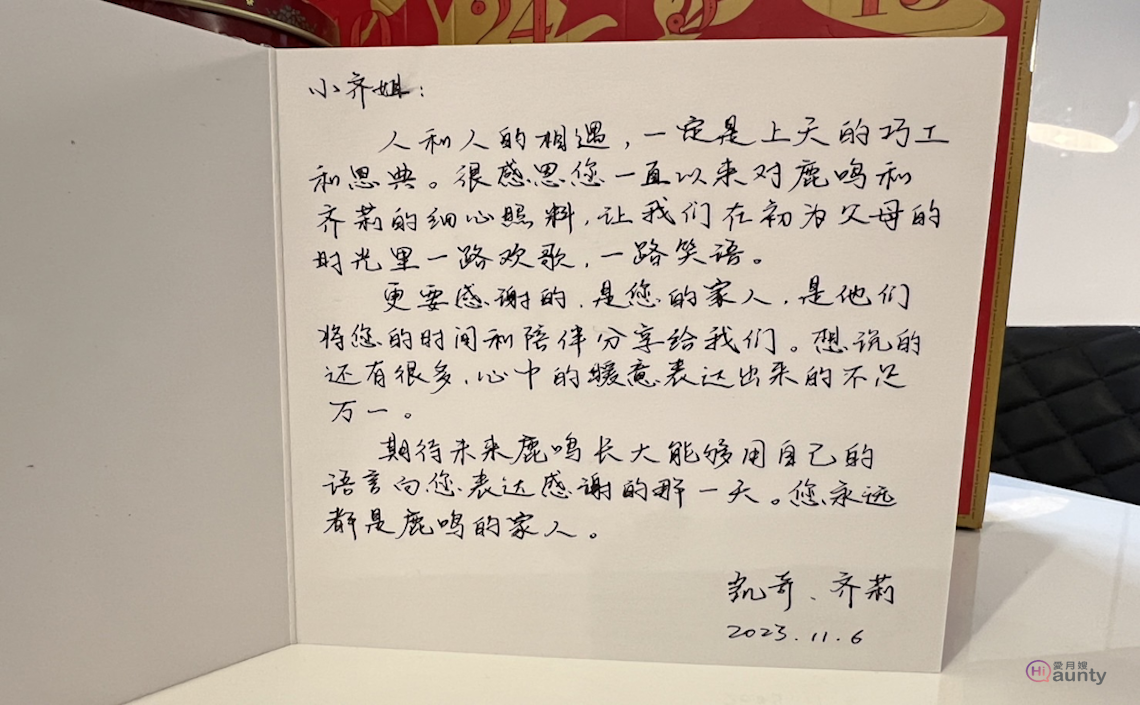 小齐姐：
人和人的相遇，一定是上天的巧工
和恩典。很感恩您一直以来对鹿鸣和
齐莉的细心照料，让我们在初为父母的
时光里一路欢歌，一路笑语。
更要感谢的，是您的家人，是他们
将您的时间和陪伴分享给我们。想说的
还有很多，心中的暖意表达出来的不足
万一。
期待未来鹿鸣长大能够用自己的
语言向您表达感谢的那一天。您永远
都是鹿鸣的家人。
凯奇、齐莉
2023.11.6
24
15
Hi
愛月嫂
aunty